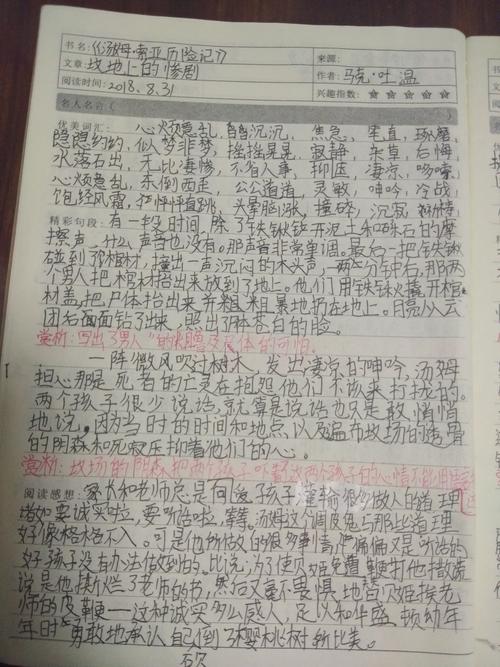 书名:《汤姆·索亚历险记》
来源:
文章:坟地上的惨剧
作者:马克·吐温
阅读时间:2018.8.31
兴趣指数:☆☆☆☆☆
名人名言(
优美词汇: 心烦意乱,昏沉沉, 焦急, 笔直,
隐隐约约, 似梦非梦, 摇摇晃晃, 寂静, 杂草, 后悔,
水落石出, 无比凄惨, 不省人事, 抑压, 凄凉, 咳嗽,
心烦意乱, 东倒西歪, 公公道道, 灵敏, 呻吟, 冷战,
饱经风霜, 怦怦直跳, 头晕脑涨, 撞碎, 沉寂
精彩句段:有一段时间除了铁锹铲开泥土和砾石的摩
擦声,什么声音也没有。那声音非常单调。最后一把铁锹
碰到了棺材,撞出一声沉闷的木头声,两分钟后,那两
个男人把棺材抬出来放到了地上。他们用铁锹撬开棺
材盖把尸体抬出来并粗粗暴地扔在地上。月亮从云
团后面钻了出来,照出了惨苍白的脸。
赏析:写出了男人 的 及尸体的可怕。
一阵微风吹过树木,发出凄凉的呻吟,汤姆
担心那是死者的亡灵在抱怨他们不该来打扰的。
两个孩子很少说话,就算是说话也只是敢悄悄
地说,因为当时的时间和地点以及遍布坟场的透骨
的阴森和死寂压抑着他们的心。
赏析:坟场的阴森把两个孩子吓着 这两个孩子的心情不能用
阅读感想: 家长和老师总是向爱孩子灌输很多做人的道理
要诚实啦,要听话啦,等等。汤姆这个调皮鬼与那些道理
好像格格不入。可是他所做的很多事情偏偏又是听话的
好孩子没有办法做到的。比说,为了使贝姬免 鞭打他撒谎
说是他撕烂了老师的书,然后又毫不畏惧地替贝姬挨老
师的皮鞭——这种诚实多么感人,足以和华盛顿幼年
年时勇敢地承认自己倒了樱桃树 比美。
砍